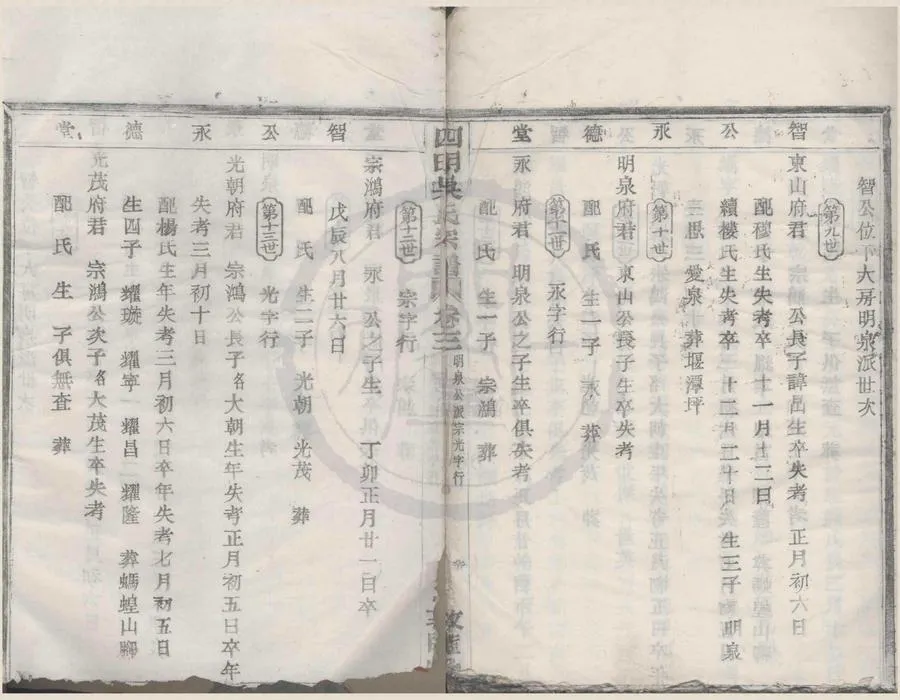 智公位下大房明泉派世次
第九世
智 東山府君 宗 公長子諱 生卒失考 正月初六日
配穆氏生失考卒 十一月十二日
公 續樓氏生失考卒 十二月二十日 生三子 明泉
三 愛泉 葬堰潭坪
永 第十世
明泉府君 東山公長子生卒失考
德 配 氏 生一子 永 葬
第十一世 永字行
堂 永 府君 明泉公之子生卒俱失考
配 氏 生一子 宗鴻 葬
四明吳氏宗譜 卷三 明泉公派宗光字行
第十二世 宗字行
宗鴻府君 永 公之子生 丁卯正月廿一日卒
智 戊辰八月廿六日
配 氏 生二子 光朝 光茂 葬
公 第十三世 光字行
光朝府君 宗鴻公長子名大朝生年失考正月初五日卒年
永 失考三月初十日
配楊氏生年失考三月初六日卒年失考七月初五日
德 生四子 耀璇 耀寧 耀昌 耀隆 葬螞蝗山腳
光茂府君 宗鴻公次子名大茂生卒失考
堂 配 氏 生 子俱無查 葬